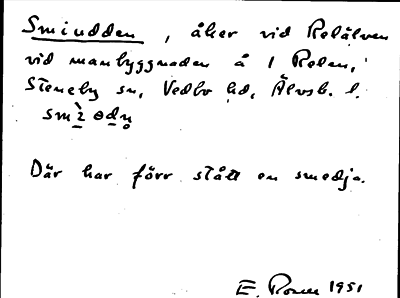 Smiudden, åker vid Relälven
vid manbyggnaden å 1 Relen,
Steneby sn, Vedbo hd, Älvsb. l.
Där har förr stått en smedja.
E. 1951